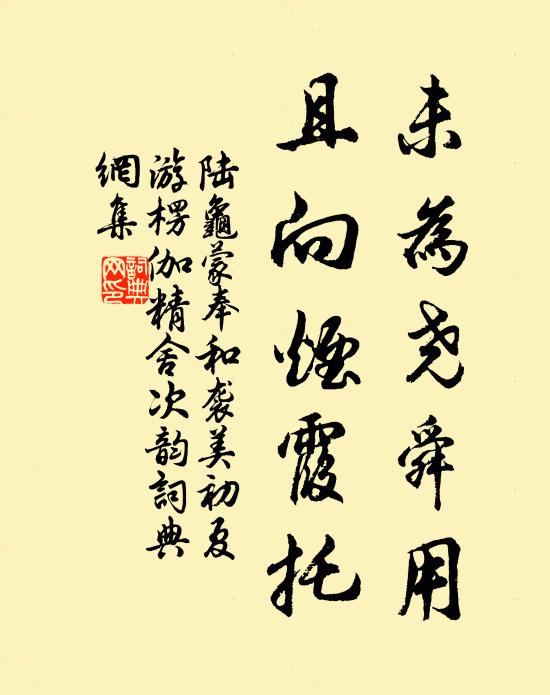 未為尧舜用
且向煙霞托
陆龜蒙奉和袭美初夏
游楞伽精舍次韵詞典
網集
詞典網印